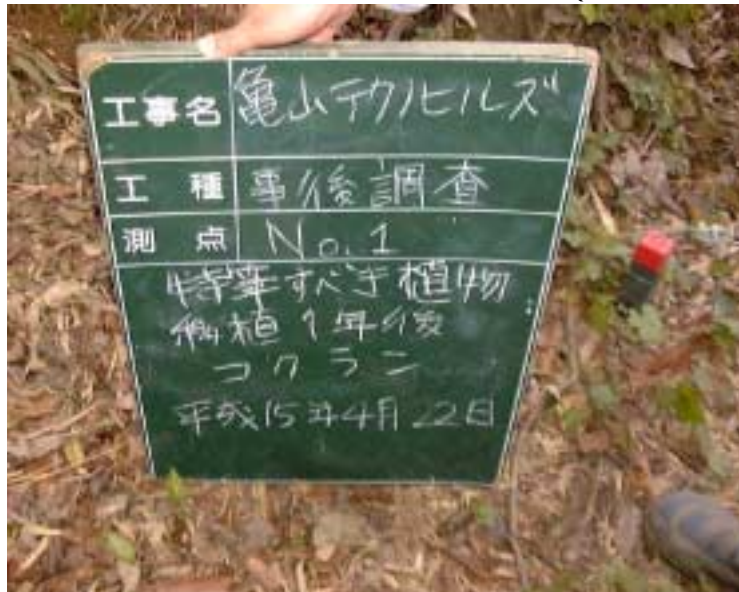 工事名 亀山テクノヒルズ
工種 事後調査
測点 No.1
特筆すべき植物
移植1年後
コクラン
平成15年4月22日